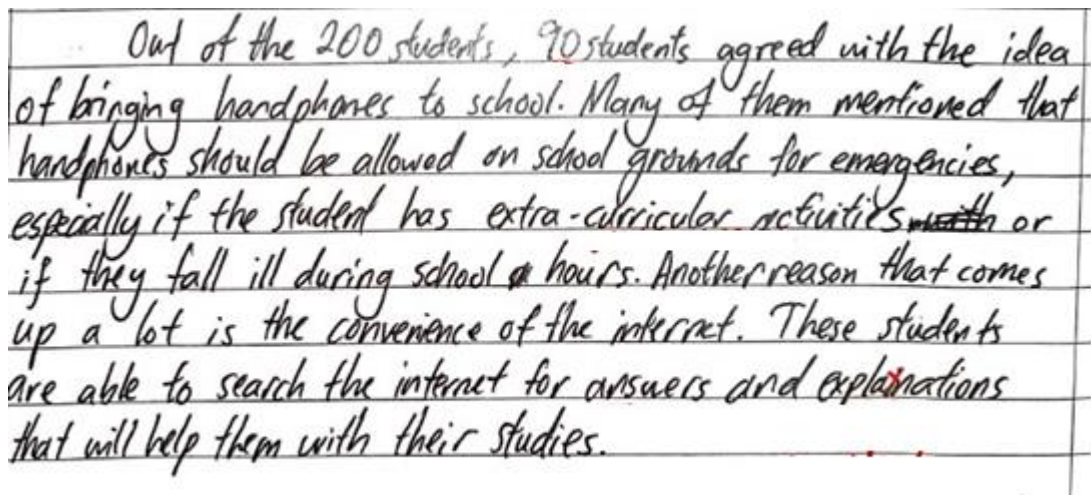 Out of the 200 students, 90 students agreed with the idea
of bringing handphones to school. Many of them mentioned that
handphones should be allowed on school grounds for emergencies,
especially if the student has extra-curricular activities or
if they fall ill during school hours. Another reason that comes
up a lot is the convenience of the internet. These students
are able to search the internet for answers and explanations
that will help them with their studies.